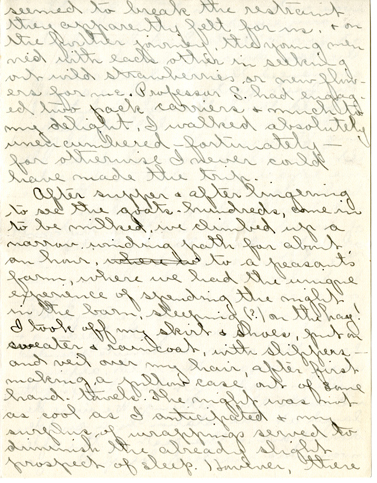 seemed to break the restraint
they apparently felt for us, & on
the further journey, the young men
vied with each other in seeking
out wild strawberries or new flow-
ers for me. Professor S. had engag-
ed two pack carriers & much to
my delight, I walked absolutely
unencumbered - fortunately -
for otherwise I never could
have made the trip.
After supper & after lingering
to see the goats - hundreds, come in
to be milked, we climbed up a
narrow winding path for about
an hour, to a peasant's
farm, where we had the unique
experience of spending the night
in the barn, sleeping (?) on the hay!
I took off my skirt & shoes, put on
sweater & raincoat, with slippers -
and veil over my hair, after first
making a pillow case out of some
hand towels. The night was not
as cool as I anticipated & my
surplus of wrappings served to
diminish the already slight
prospect of sleep. However, there